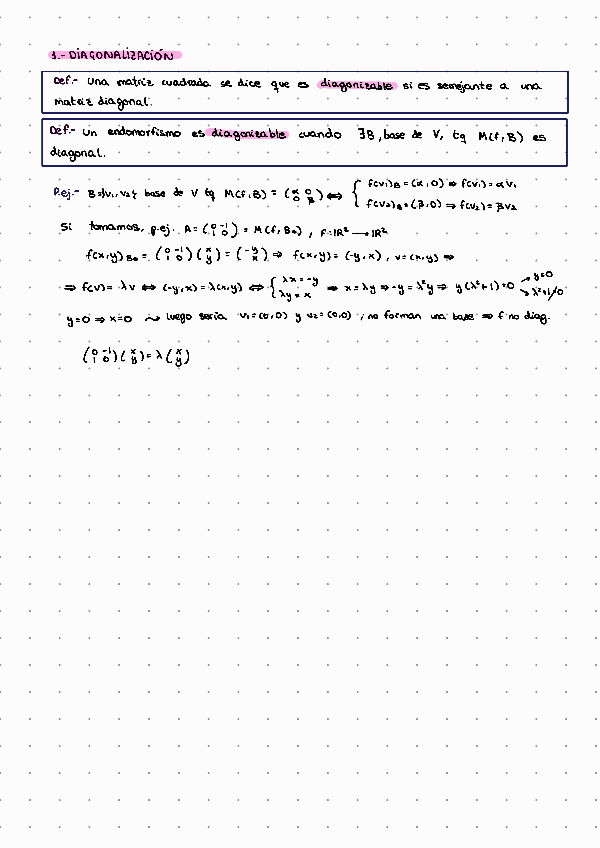 1.- DIAGONALIZACIÓN
Def.- Una matriz cuadrada se dice que es diagonizable si es semejante a una
matriz diagonal.
Def.- Un endomorfismo es diagonizable cuando ∃B, base de V, tq M(f,B) es
diagonal.
P.ej.- B={v₁,v₂} base de V tq M(f,B) = (α 0 / 0 β) ⇔ { f(v₁)_B = (α,0) ⇒ f(v₁) = αv₁
f(v₂)_B = (β,0) ⇒ f(v₂) = βv₂
Si tomamos, p.ej. A = (0 -1 / 1 0) = M(f,B₀), f:ℝ² → ℝ²
f(x,y)_B₀ = (0 -1 / 1 0)(x / y) = (-y / x) ⇒ f(x,y) = (-y,x), v=(x,y) ⇒
⇒ f(v) = λv ⇔ (-y,x) = λ(x,y) ⇔ { λx = -y / λy = x ⇒ x = λy ⇒ -y = λ²y ⇒ y(λ²+1) = 0 → y=0 → λ²+1≠0
y=0 ⇒ x=0 ⤳ luego sería v₁=(0,0) y v₂=(0,0), no forman una base ⇒ f no diag.
(0 -1 / 1 0)(x / y) = λ(x / y)